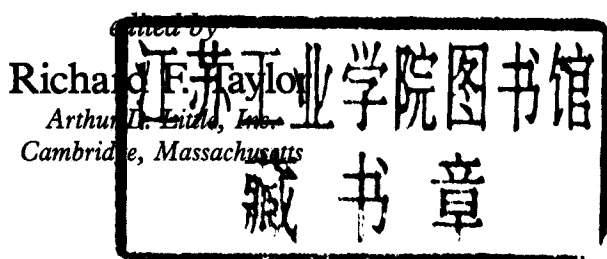 edited by
Richard F. Taylor
Arthur D. Little, Inc.
Cambridge, Massachusetts
江苏工业学院图书馆
藏书章